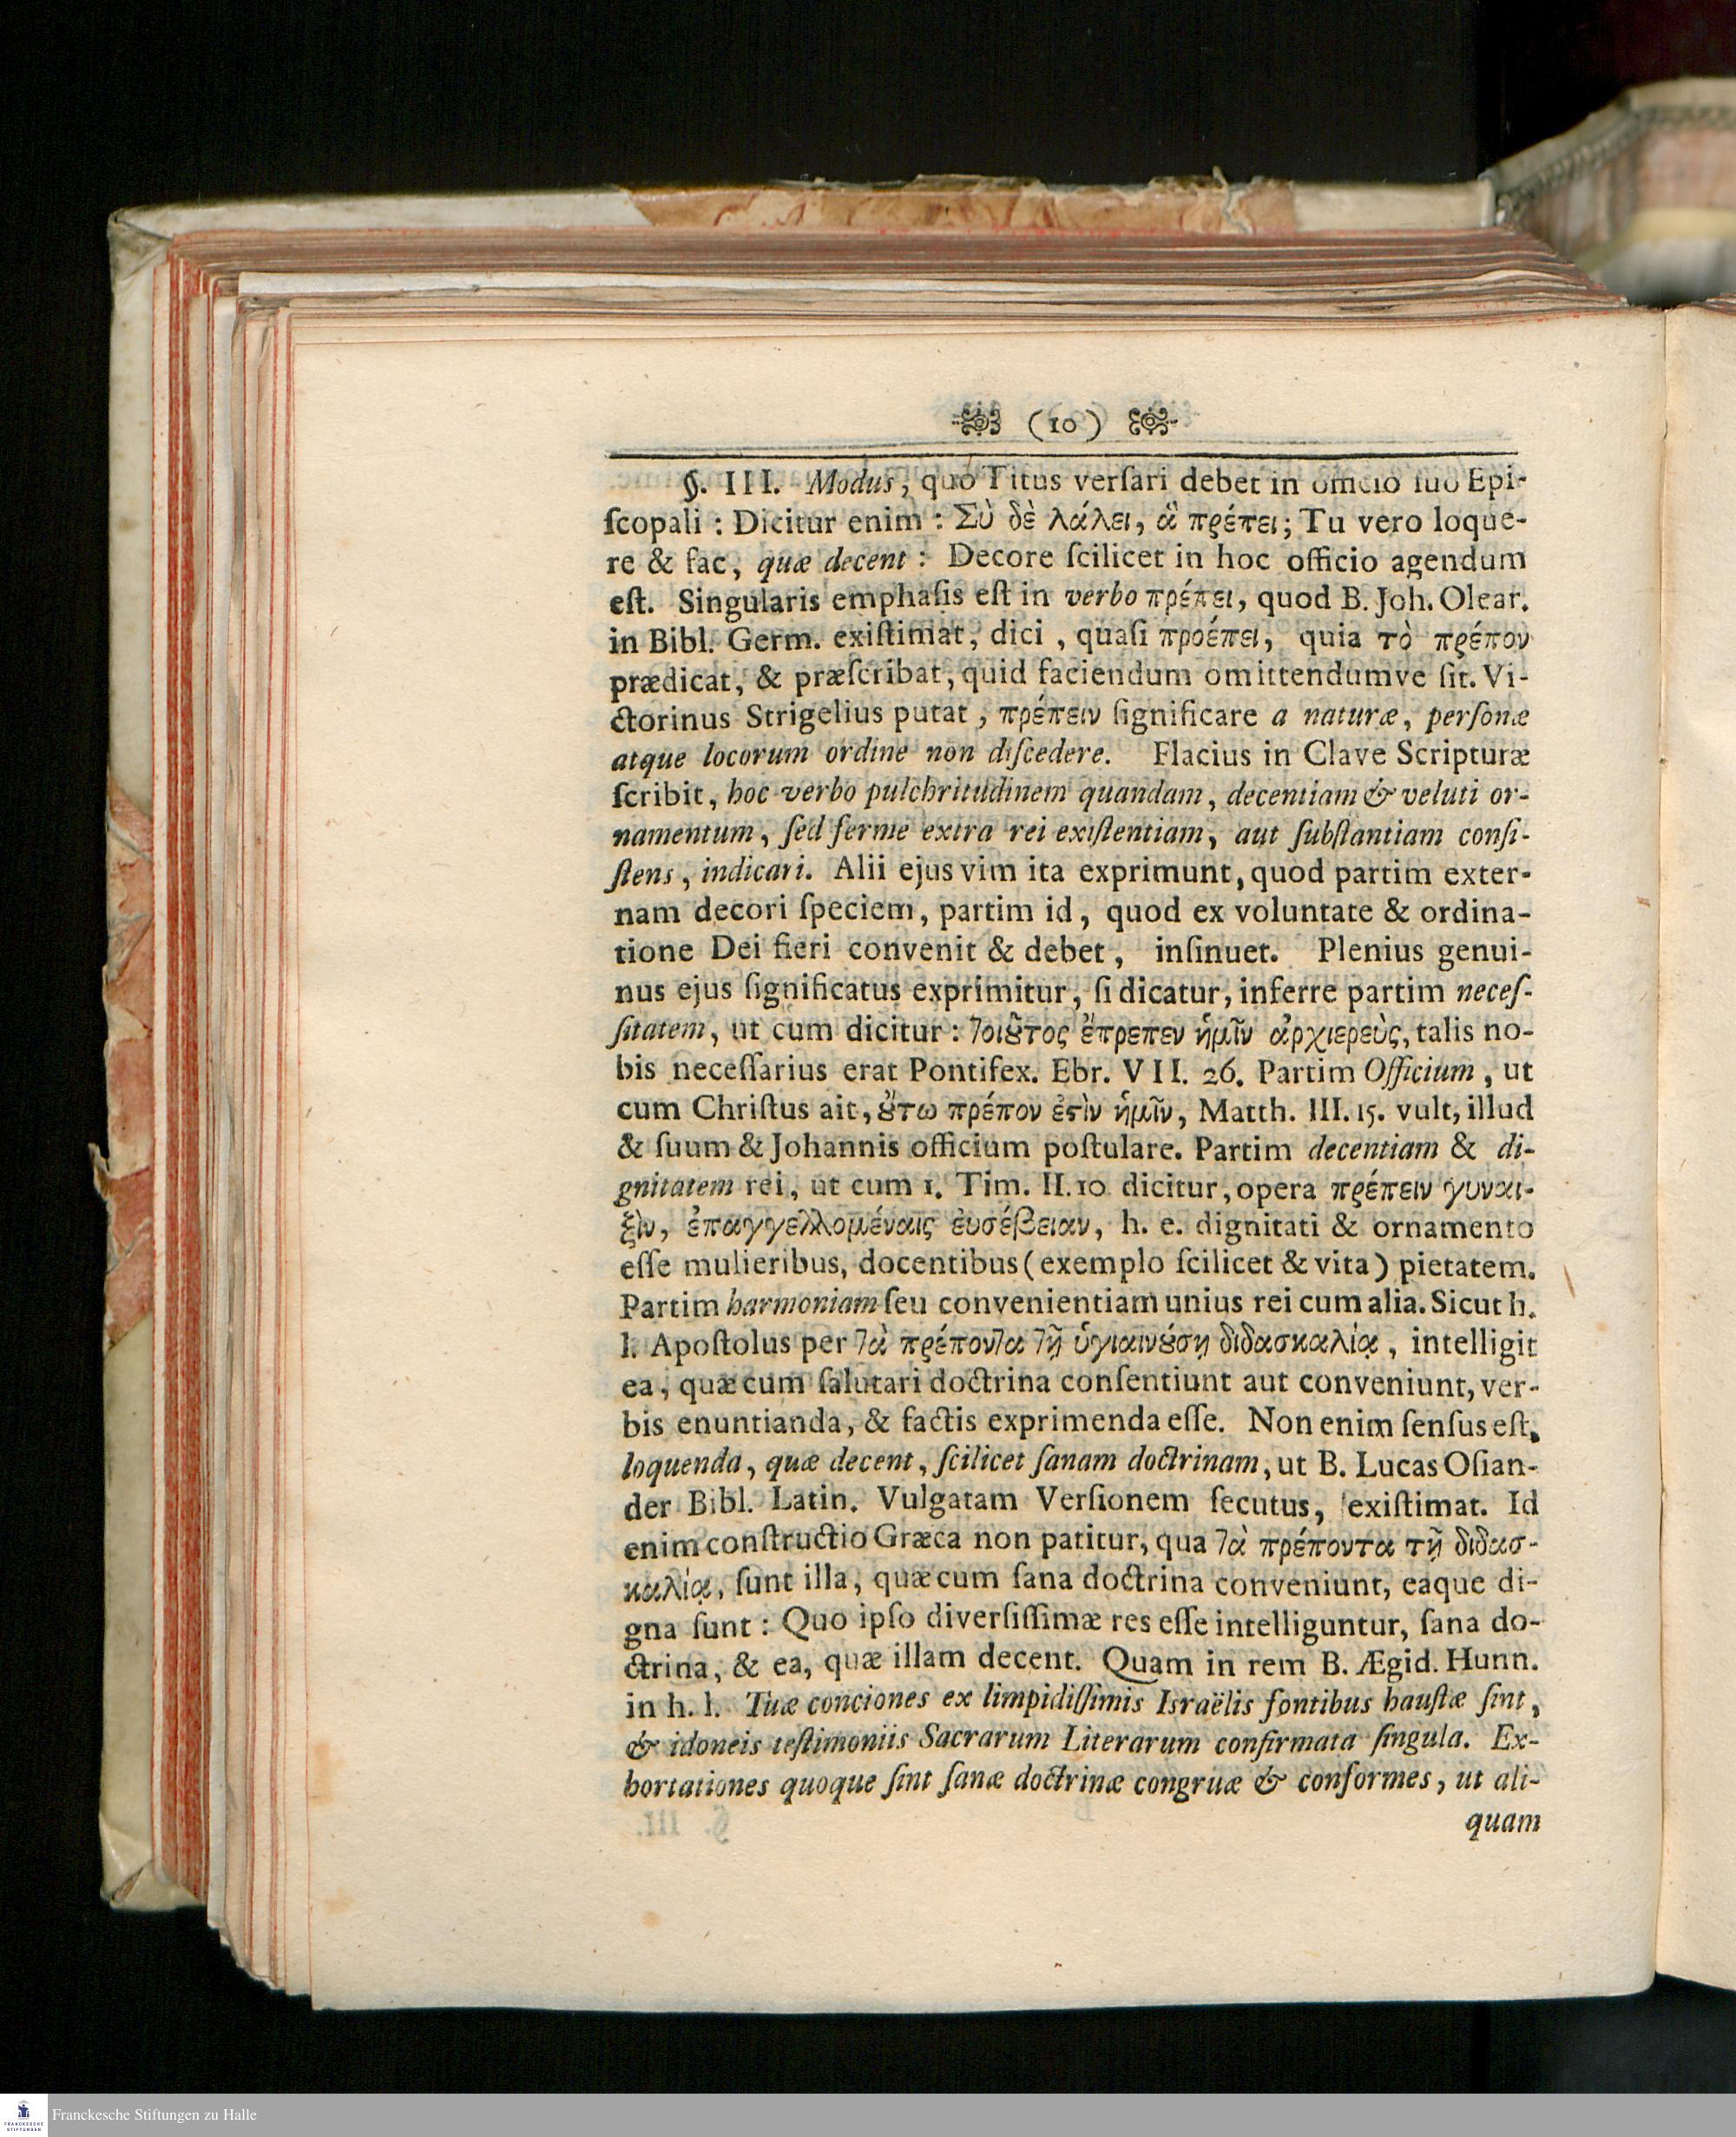 (10)
§. III. Modus, quo Titus verſari debet in officio ſuo Epi-
ſcopali : Dicitur enim : Σὺ δὲ λάλει, ἃ πρέπει; Tu vero loque-
re & fac, quæ decent : Decore ſcilicet in hoc officio agendum
eſt. Singularis emphaſis eſt in verbo πρέπει, quod B. Joh. Olear.
in Bibl. Germ. exiſtimat, dici , quaſi προέπει, quia τὸ πρέπον
prædicat, & præſcribat, quid faciendum omittendumve ſit. Vi-
ctorinus Strigelius putat , πρέπειν ſignificare a naturæ, perſonæ
atque locorum ordine non diſcedere. Flacius in Clave Scripturæ
ſcribit, hoc verbo pulchritudinem quandam, decentiam & veluti or-
namentum, ſed ferme extra rei exiſtentiam, aut ſubſtantiam conſi-
ſtens, indicari. Alii ejus vim ita exprimunt, quod partim exter-
nam decori ſpeciem, partim id, quod ex voluntate & ordina-
tione Dei fieri convenit & debet, inſinuet. Plenius genui-
nus ejus ſignificatus exprimitur, ſi dicatur, inferre partim neceſ-
ſitatem, ut cum dicitur : Τοιȣ͂τος ἔπρεπεν ἡμῖν ἀρχιερεὺς, talis no-
bis neceſſarius erat Pontifex. Ebr. VII. 26. Partim Officium, ut
cum Chriſtus ait, ȣ̔́τω πρέπον ἐϛὶν ἡμῖν, Matth. III. 15. vult, illud
& ſuum & Johannis officium poſtulare. Partim decentiam & di-
gnitatem rei, ut cum 1. Tim. II. 10 dicitur, opera πρέπειν γυναι-
ξὶν, ἐπαγγελλομέναις ἐυσέβειαν, h. e. dignitati & ornamento
eſſe mulieribus, docentibus (exemplo ſcilicet & vita) pietatem.
Partim harmoniam ſeu convenientiam unius rei cum alia. Sicut h.
l. Apoſtolus per τὰ πρέποντα τῇ ὑγιαινȣ́σῃ διδασκαλίᾳ, intelligit
ea, quæ cum ſalutari doctrina conſentiunt aut conveniunt, ver-
bis enuntianda, & factis exprimenda eſſe. Non enim ſenſus eſt,
loquenda, quæ decent, ſcilicet ſanam doctrinam, ut B. Lucas Oſian-
der Bibl. Latin. Vulgatam Verſionem ſecutus, exiſtimat. Id
enim conſtructio Græca non patitur, qua τὰ πρέποντα τῇ διδασ-
καλίᾳ, ſunt illa, quæ cum ſana doctrina conveniunt, eaque di-
gna ſunt : Quo ipſo diverſiſſimæ res eſſe intelliguntur, ſana do-
ctrina, & ea, quæ illam decent. Quam in rem B. Ægid. Hunn.
in h. l. Tuæ conciones ex limpidiſſimis Israëlis fontibus hauſtæ ſint,
& idoneis teſtimoniis Sacrarum Literarum confirmata ſingula. Ex-
hortationes quoque ſint ſanæ doctrinæ congruæ & conformes, ut ali-
quam
Franckesche Stiftungen zu Halle
FRANCKESCHE
STIFTUNGEN